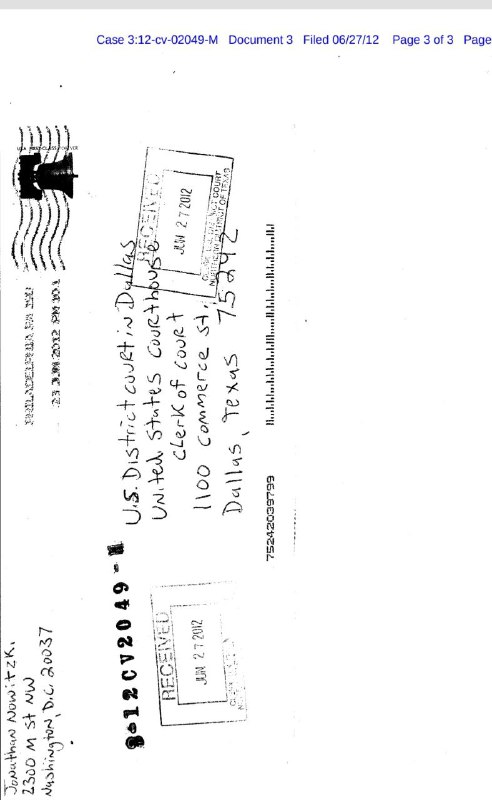 Case 3:12-cv-02049-M Document 3 Filed 06/27/12 Page 3 of 3 Page
Jonathan Nowitzki,
2300 M St NW
Washington, D.C. 20037
PHILADELPHIA PA
23 JUN 2012 PM
U.S. District court in Dallas
United States Courthouse
Clerk of court
1100 commerce st.
Dallas, Texas 75242
RECEIVED
JUN 27 2012
CLERK, U.S. DISTRICT COURT
NORTHERN DISTRICT OF TEXAS
8-12CV2049-M
RECEIVED
JUN 27 2012
75242039799